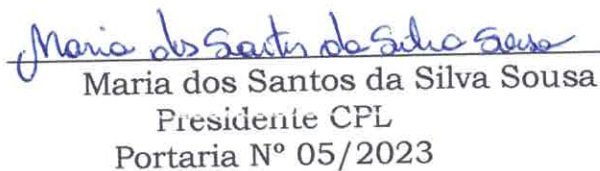 Maria dos Santos da Silva Sousa
Maria dos Santos da Silva Sousa
Presidente CPL
Portaria Nº 05/2023